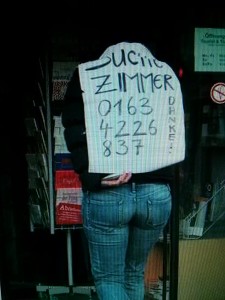 SUCHE
ZIMMER
0163
4226
837
DANKE!
Öffnung